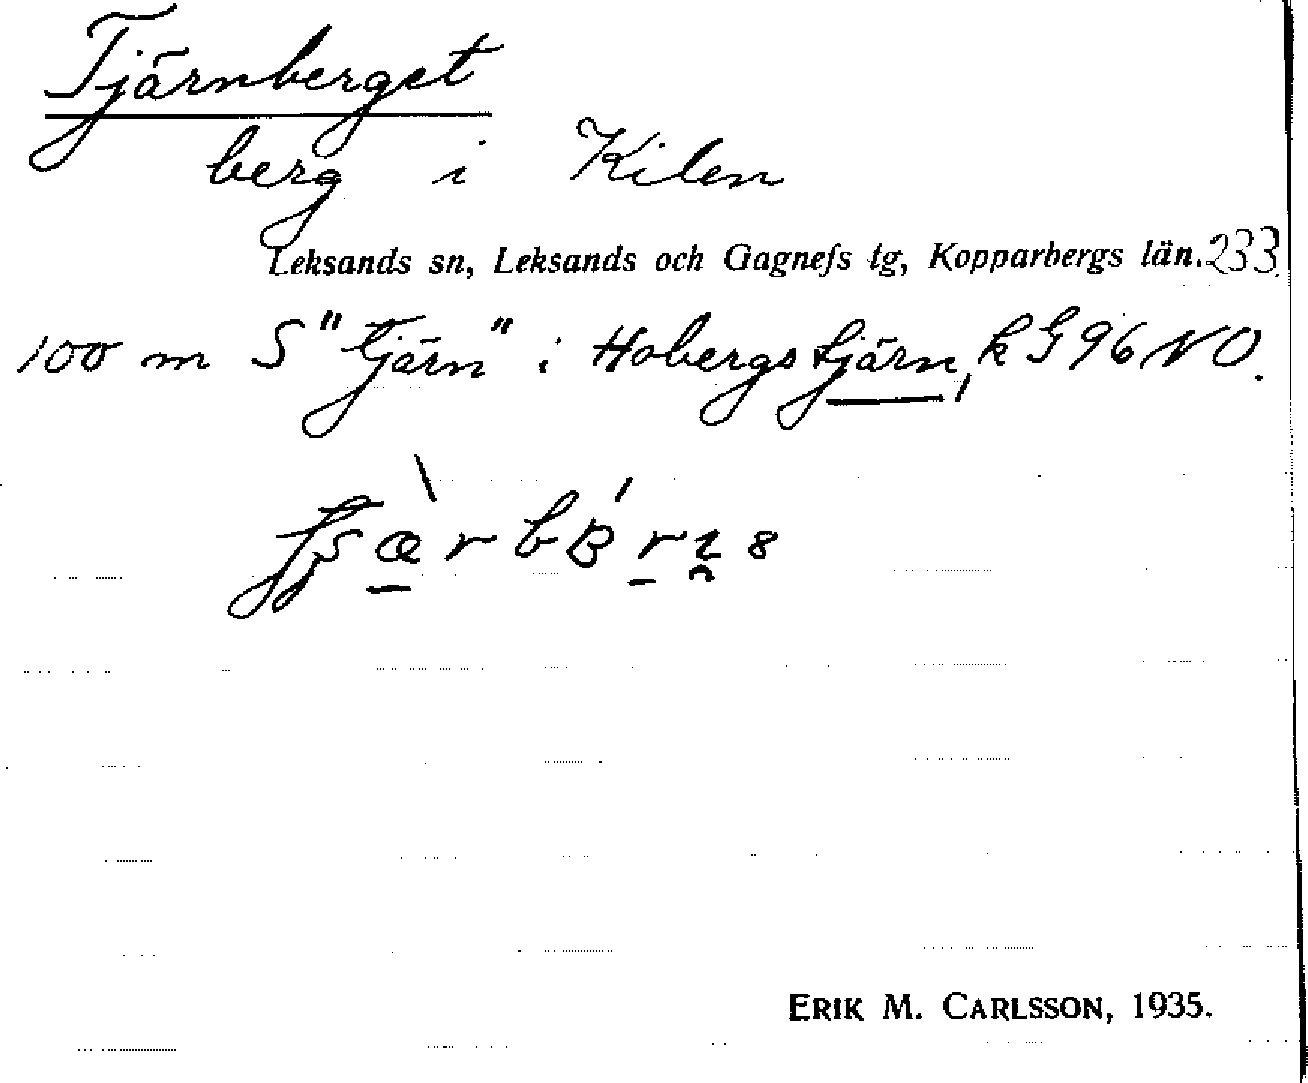 Tjärnberget
berg i Kilen
Leksands sn, Leksands och Gagnefs tg, Kopparbergs län. 233
100 m S "tjärn" i Hobergstjärn, k G 96 NO.
ERIK M. CARLSSON, 1935.